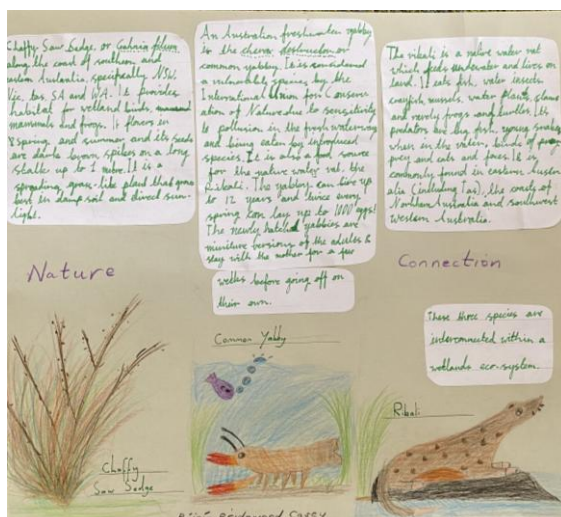 Chaffy Saw Sedge, or Gahnia filum
along the coast of southern and
eastern Australia, specifically NSW,
Vic, tas SA and WA. It provides
habitat for wetland birds,
mammals and frogs. It flowers in
spring and summer and its seeds
are dark brown spikes on a long
stalk up to 1 metre. It is a
spreading, grass-like plant that grows
best in damp soil and direct sun-
light.
An Australian freshwater yabby
is the cherax destructor or
common yabby. It is considered
a vulnerable species by the
International Union for Conserv-
ation of Nature due to sensitivity
to pollution in the fresh waterways
and being eaten by introduced
species. It is also a food source
for the native water rat, the
Rikali. The yabby can live up
to 12 years and twice every
spring can lay up to 1000 eggs!
The newly hatched yabbies are
miniture versions of the adults &
stay with the mother for a few
weeks before going off on
their own.
The rikali is a native water rat
which feeds underwater and lives on
land. It eats fish, water insects
crayfish, mussels, water plants, clams
and rarely frogs and turtles. It's
predators are big fish, young snakes
when in the water, birds of
prey and cats and foxes. It is
commonly found in eastern Austr-
alia (including Tas), the coasts of
Northern Australia and southwest
Western Australia.
Nature
Connection
These three species are
interconnected within a
wetlands eco-system.
Common Yabby
Rikali
Chaffy
Saw Sedge